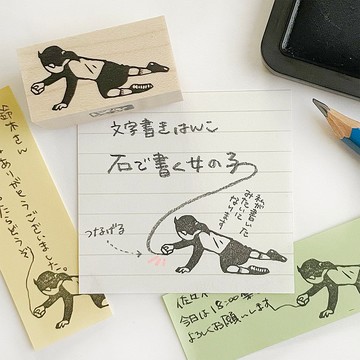 文字書きはんこ
石で書く女の子
私が書いた
みたいに
なります
つなげる
鈴木さん
ありがとうございました。
たらどうぞ
佐々木
今日は18:00
よろしくお願いします